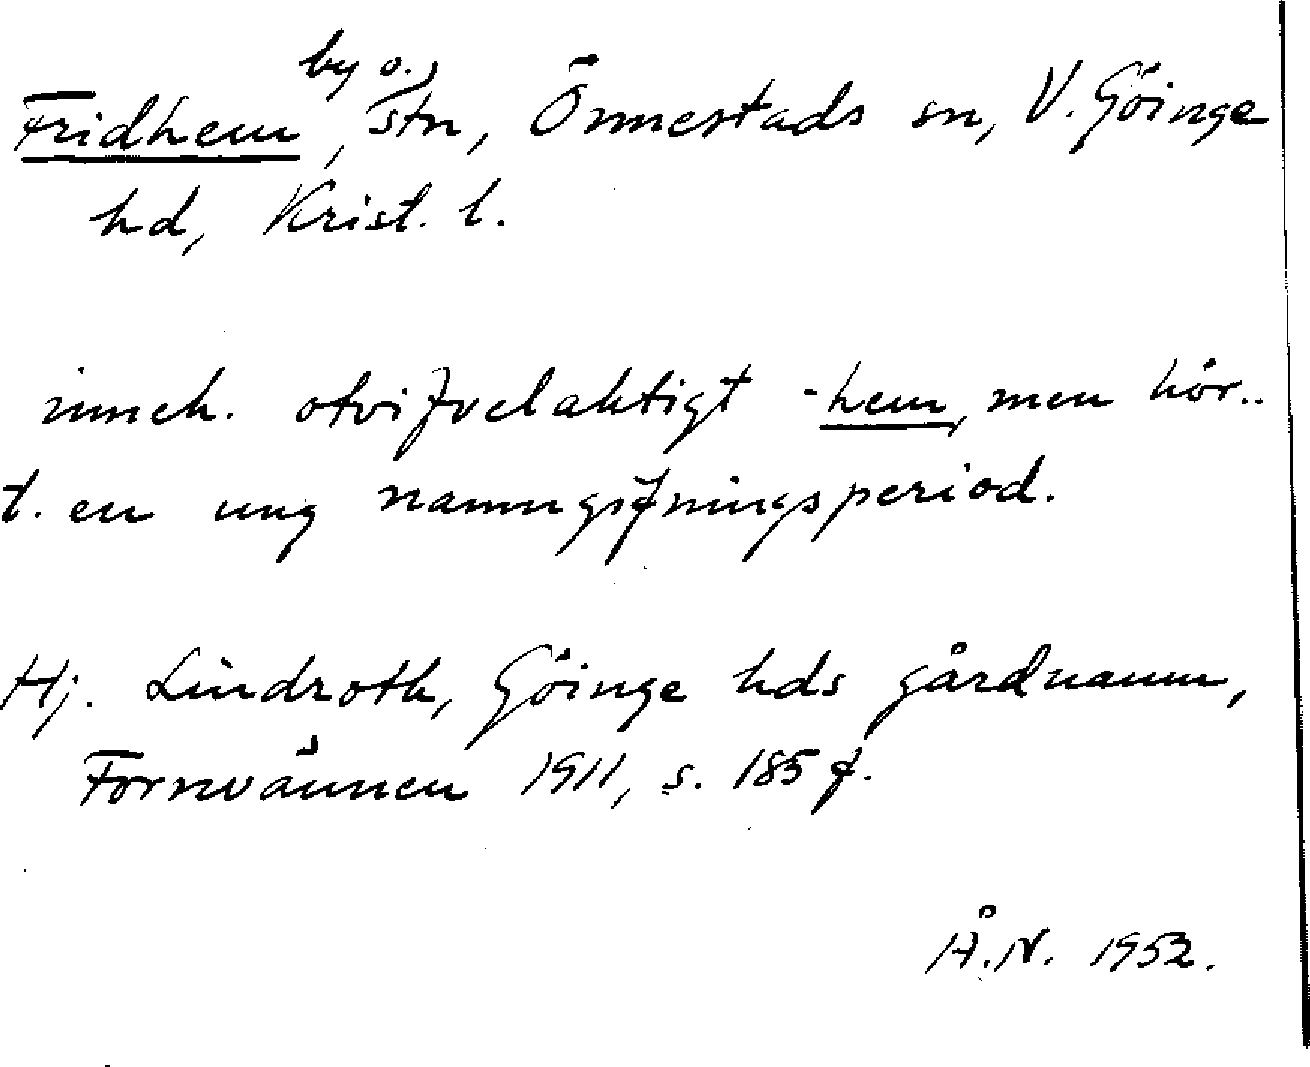 Fridhem, by o. stn, Önnestads sn, V. Göinge
hd, Krist. l.
inneh. otvifvelaktigt -hem, men hör..
t. en ung namngifningsperiod.
Hj. Lindroth, Göinge hds gårdnamn,
Fornvännen 1911, s. 185 f.
Å.N. 1952.